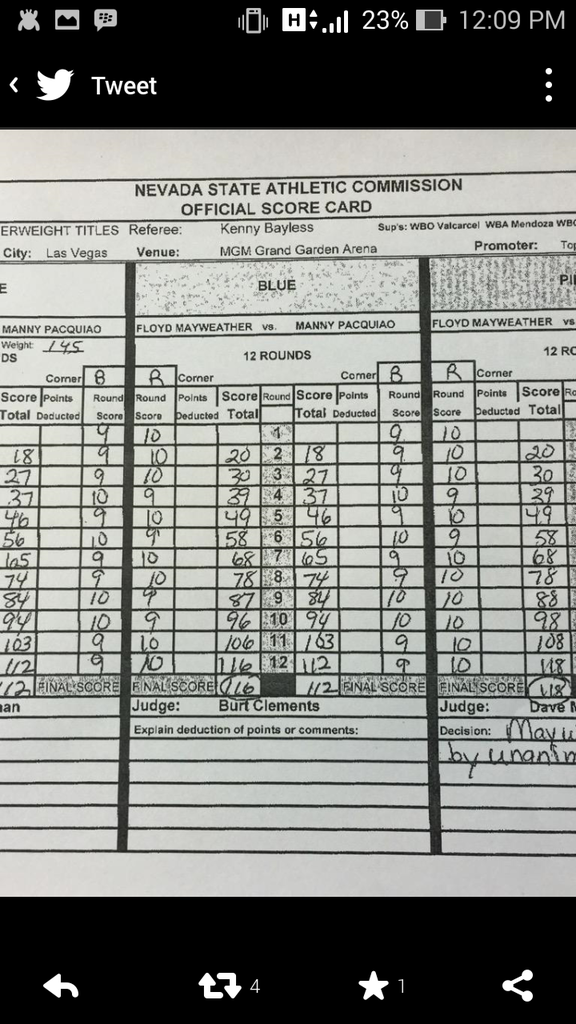 23% 12:09 PM
Tweet
NEVADA STATE ATHLETIC COMMISSION
OFFICIAL SCORE CARD
ERWEIGHT TITLES Referee: Kenny Bayless Sup's: WBO Valcarcel WBA Mendoza WBC
City: Las Vegas Venue: MGM Grand Garden Arena Promoter: Top
E BLUE PI
MANNY PACQUIAO FLOYD MAYWEATHER vs. MANNY PACQUIAO FLOYD MAYWEATHER vs
Weight: 145
DS 12 ROUNDS 12 RO
Corner B R Corner Corner B R Corner
Score Points Round Round Points Score Round Score Points Round Round Points Score Ro
Total Deducted Score Score Deducted Total Total Deducted Score Score Deducted Total
9 10 1 9 10
18 9 10 20 2 18 9 10 20
27 9 10 30 3 27 9 10 30
37 10 9 39 4 37 10 9 39
46 9 10 49 5 46 9 10 49
56 10 9 58 6 56 10 9 58
65 9 10 68 7 65 9 10 68
74 9 10 78 8 74 9 10 78
84 10 9 87 9 84 10 10 88
94 10 9 96 10 94 10 10 98
103 9 10 106 11 103 9 10 108
112 9 10 116 12 112 9 10 118
112 FINAL SCORE FINAL SCORE 116 112 FINAL SCORE FINAL SCORE 118
an Judge: Burt Clements Judge: Dave M
Explain deduction of points or comments: Decision: Mayw
by unanim
4 1